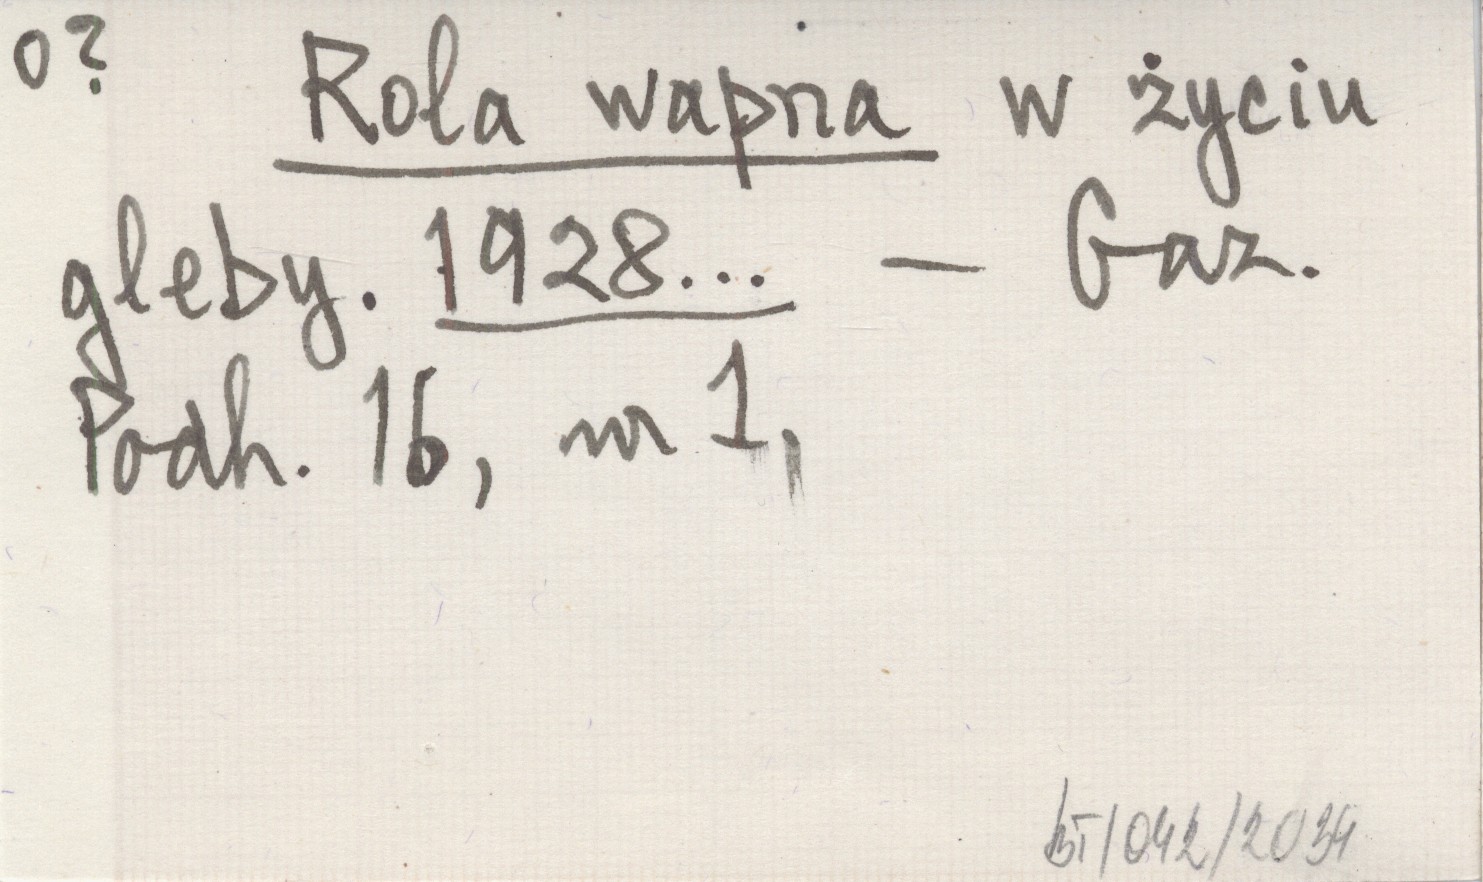 o?
Rola wapna w życiu
gleby. 1928... — Gaz.
Podh. 16, nr 1,
BT/042/2034